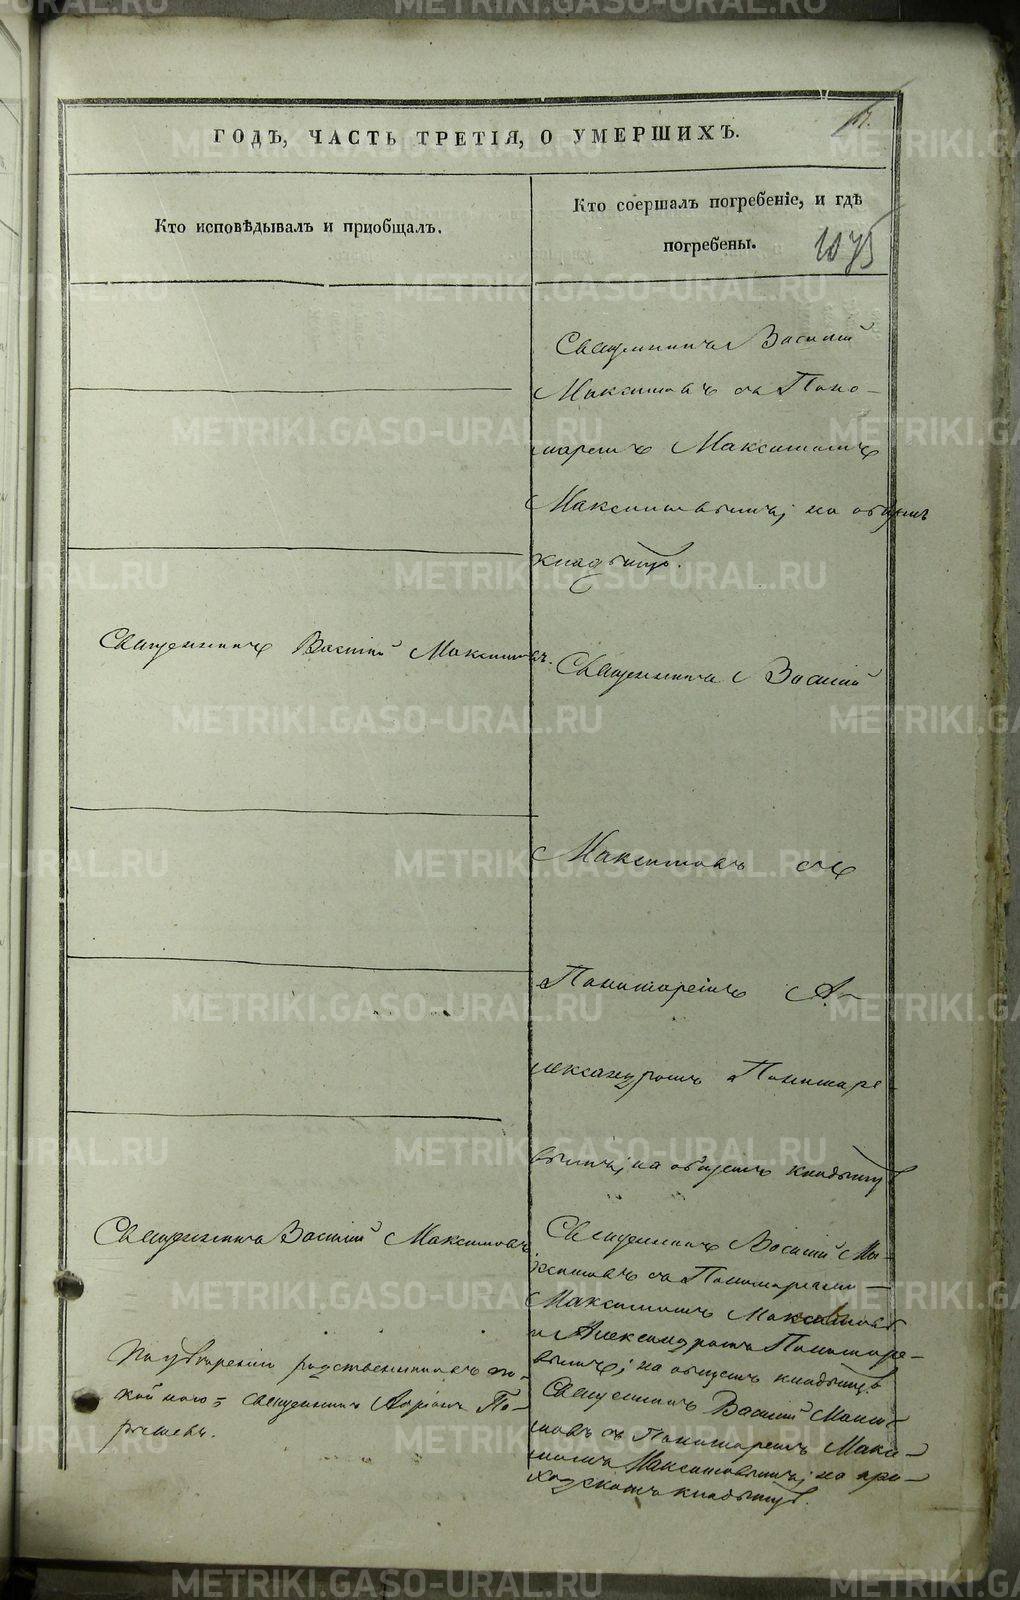 ГОДЪ, ЧАСТЬ ТРЕТІЯ, О УМЕРШИХЪ.
Кто исповѣдывалъ и приобщалъ.
Кто соершалъ погребеніе, и гдѣ
погребены.
1075
Священникъ Василій
Максимовъ съ Поно-
маремъ Максимомъ
Максимовымъ; на общемъ
кладбищѣ.
Священникъ Василій Максимовъ.
Священникъ Василій
Максимовъ съ
Пономаремъ А-
лександромъ Пономаре-
вымъ; на общемъ кладбищѣ
Священникъ Василій Максимовъ.
Священникъ Василій Ма-
ксимовъ съ Пономарями
Максимомъ Максимов
и Александромъ Пономаре-
вымъ; на общемъ кладбищѣ
По увѣренію родственниковъ по-
койнаго = священникъ Адріанъ По-
Священникъ Василій Макси-
мовъ съ Пономаремъ Макси-
момъ Максимовымъ; на при-
ходскомъ кладбищѣ.
METRIKI.GASO-URAL.RU